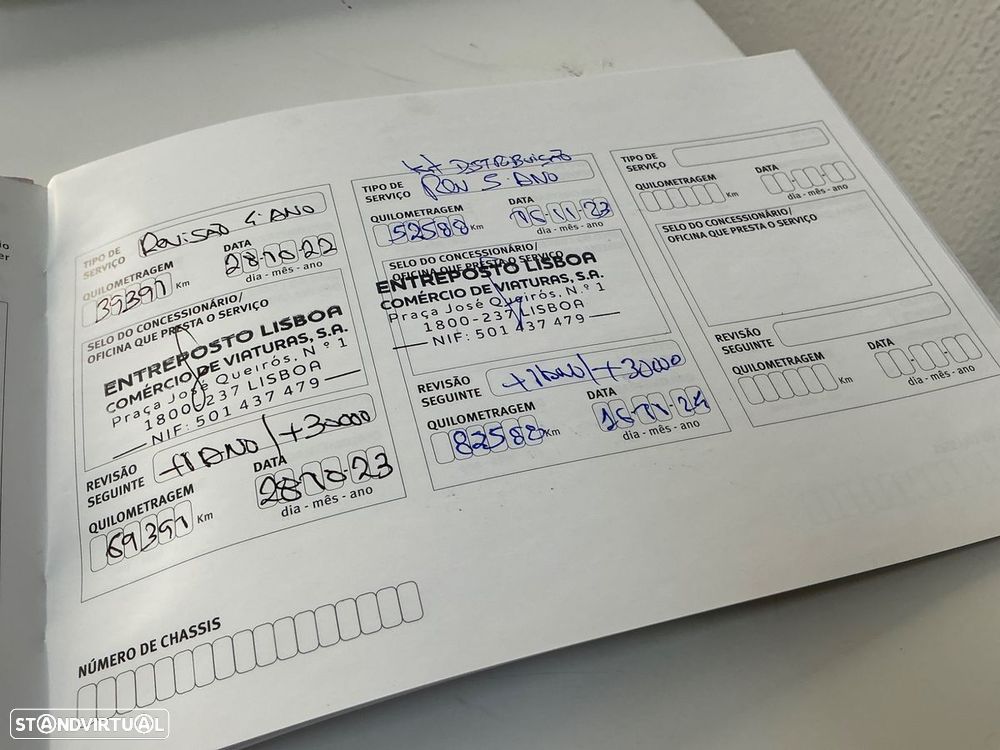 TIPO DE
SERVIÇO
REVISÃO 4º ANO
QUILOMETRAGEM
39391 Km
DATA
28-10-22
dia - mês - ano
SELO DO CONCESSIONÁRIO/
OFICINA QUE PRESTA O SERVIÇO
ENTREPOSTO LISBOA
COMÉRCIO DE VIATURAS, S.A.
Praça José Queirós, N.º 1
1800-237 LISBOA
NIF: 501 437 479
REVISÃO
SEGUINTE
+1 ANO/+30000
QUILOMETRAGEM
69391 Km
DATA
28-10-23
dia - mês - ano
Kit DISTRIBUIÇÃO
TIPO DE
SERVIÇO
REV 5º ANO
QUILOMETRAGEM
52588 Km
DATA
16-11-23
dia - mês - ano
SELO DO CONCESSIONÁRIO/
OFICINA QUE PRESTA O SERVIÇO
ENTREPOSTO LISBOA
COMÉRCIO DE VIATURAS, S.A.
Praça José Queirós, N.º 1
1800-237 LISBOA
NIF: 501 437 479
REVISÃO
SEGUINTE
+1 ANO/+30000
QUILOMETRAGEM
82588 Km
DATA
16-11-24
dia - mês - ano
TIPO DE
SERVIÇO
QUILOMETRAGEM
Km
DATA
dia - mês - ano
SELO DO CONCESSIONÁRIO/
OFICINA QUE PRESTA O SERVIÇO
REVISÃO
SEGUINTE
QUILOMETRAGEM
Km
DATA
dia - mês - ano
NÚMERO DE CHASSIS
STANDVIRTUAL